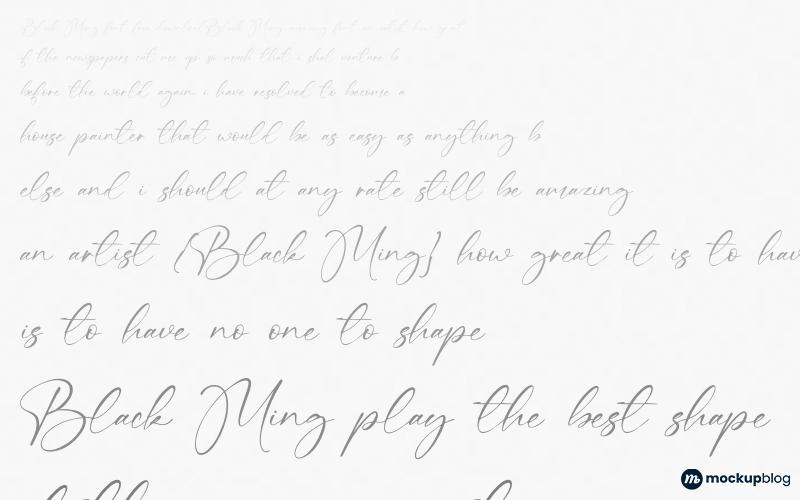 Black Ming font free download Black Ming amazing font an artist how great
if the newspapers eat me up so much that i shal venture b
before the world again i have resolved to become a
house painter that would be as easy as anything b
else and i should at any rate still be amazing
an artist {Black Ming} how great it is to hav
is to have no one to shape
Black Ming play the best shape
mockupblog